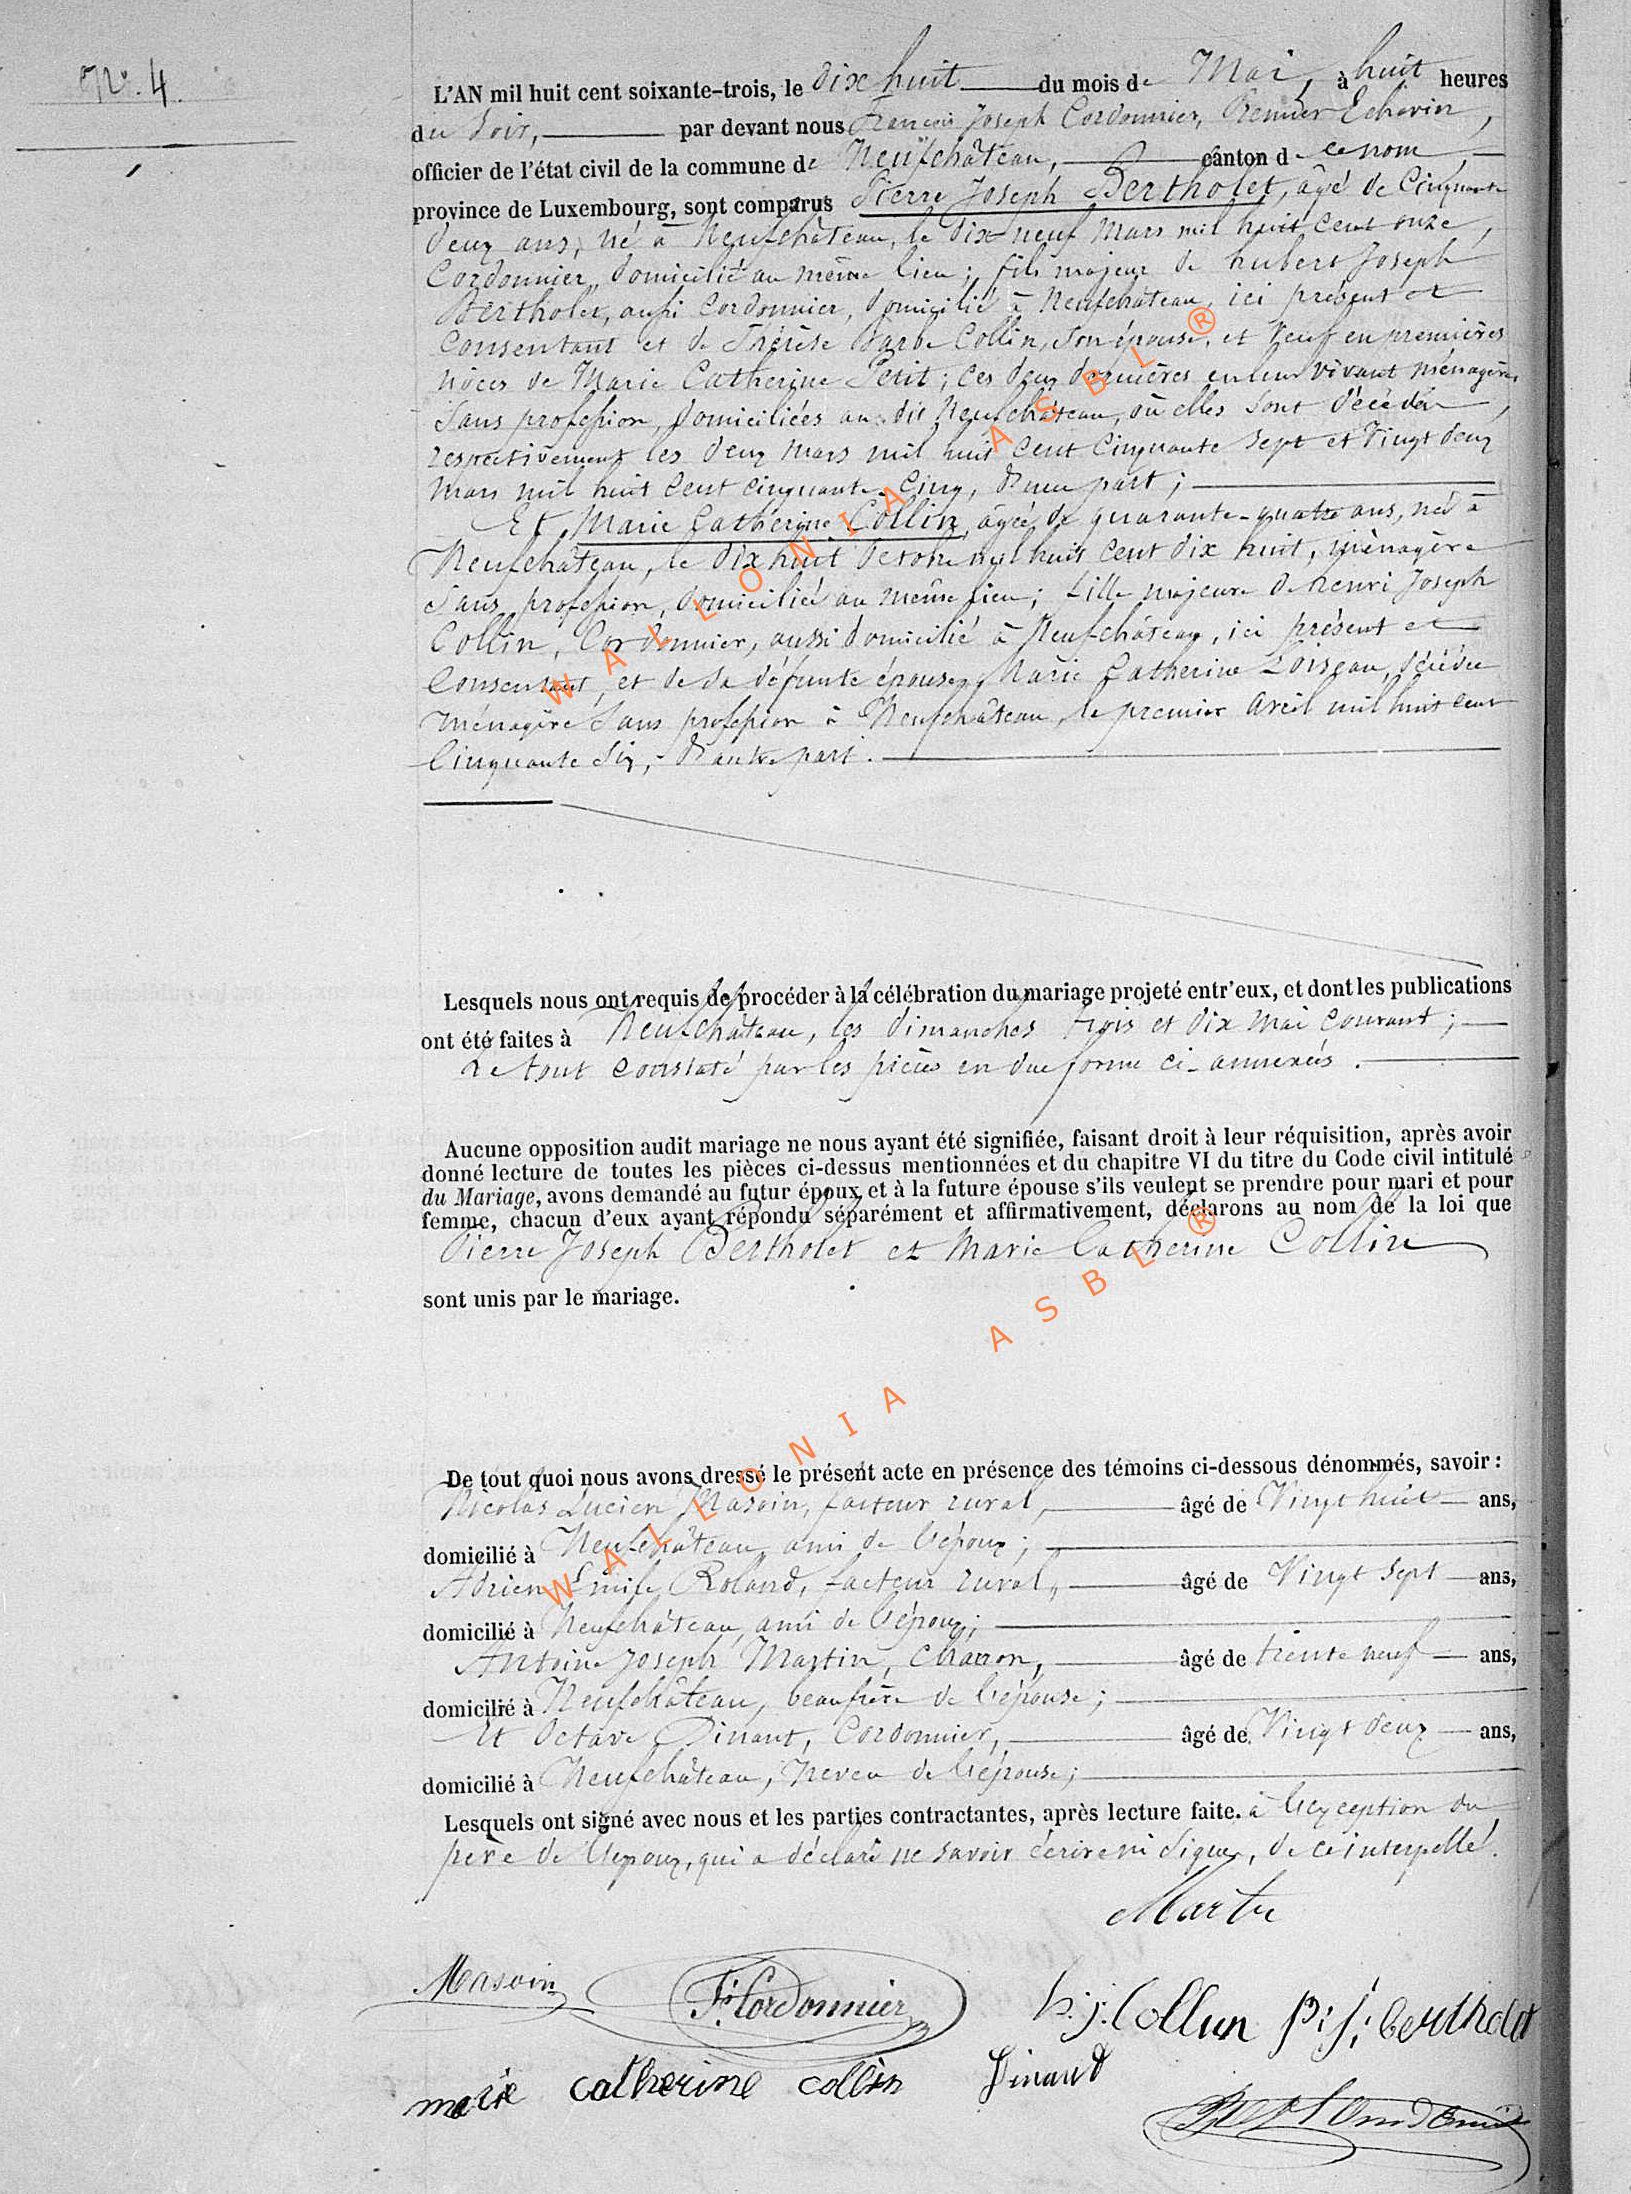 N° 4.
L'AN mil huit cent soixante-trois, le dix huit du mois de Mai, à huit heures
du soir, par devant nous François Joseph Cordonnier, Premier Echevin,
officier de l'état civil de la commune de Neufchâteau, canton de ce nom,
province de Luxembourg, sont comparus Pierre Joseph Bertholet, âgé de Cinquante
deux ans, né à Neufchâteau, le dix neuf Mars mil huit cent onze,
Cordonnier, domicilié au même lieu; fils majeur de hubert Joseph
Bertholet, aussi Cordonnier, domicilié à Neufchâteau, ici présent et
Consentant et de Thérèse Barbe Collin, son épouse, et Veuf en premières
nôces de Marie Catherine Petit; ces deux dernières en leur vivant ménagères
Sans profession, domiciliées au dit Neufchâteau, où elles sont décédées,
respectivement les deux Mars mil huit cent cinquante sept et vingt deux
mars mil huit cent cinquante-cinq, d'une part;
Et Marie Catherine Collin, âgée de quarante-quatre ans, née à
Neufchâteau, le dix huit Octobre mil huit cent dix huit, ménagère
Sans profession, domiciliée au même lieu; fille majeure de henri Joseph
Collin, Cordonnier, aussi domicilié à Neufchâteau, ici présent et
Consentant, et de sa défunte épouse, Marie Catherine Loiseau, décédée
ménagère Sans profession à Neufchâteau, le premier avril mil huit cent
Cinquante six, d'autre part.
Lesquels nous ont requis de procéder à la célébration du mariage projeté entr'eux, et dont les publications
ont été faites à Neufchâteau, les dimanches trois et dix Mai courant;
Le tout constaté par les pièces en due forme ci-annexées.
Aucune opposition audit mariage ne nous ayant été signifiée, faisant droit à leur réquisition, après avoir
donné lecture de toutes les pièces ci-dessus mentionnées et du chapitre VI du titre du Code civil intitulé
du Mariage, avons demandé au futur époux et à la future épouse s'ils veulent se prendre pour mari et pour
femme, chacun d'eux ayant répondu séparément et affirmativement, déclarons au nom de la loi que
Pierre Joseph Bertholet et Marie Catherine Collin
sont unis par le mariage.
De tout quoi nous avons dressé le présent acte en présence des témoins ci-dessous dénommés, savoir :
Nicolas Lucien Masoin, facteur rural, âgé de Vingt huit ans,
domicilié à Neufchâteau, ami de l'époux;
Adrien Emile Roland, facteur rural, âgé de Vingt sept ans,
domicilié à Neufchâteau, ami de l'époux;
Antoine Joseph Martin, charron, âgé de trente neuf ans,
domicilié à Neufchâteau, beaufrère de l'épouse;
Et Octave Dinant, Cordonnier, âgé de Vingt deux ans,
domicilié à Neufchâteau, neveu de l'épouse;
Lesquels ont signé avec nous et les parties contractantes, après lecture faite. à l'exception du
père de l'époux, qui a déclaré ne savoir écrire ni signer, de ce interpellé.
Martin
Masoin F. Cordonnier h. j. Collun p: j: bertholet
marie catherine collin Dinand
WALLONIA ASBL ®
WALLONIA ASBL ®